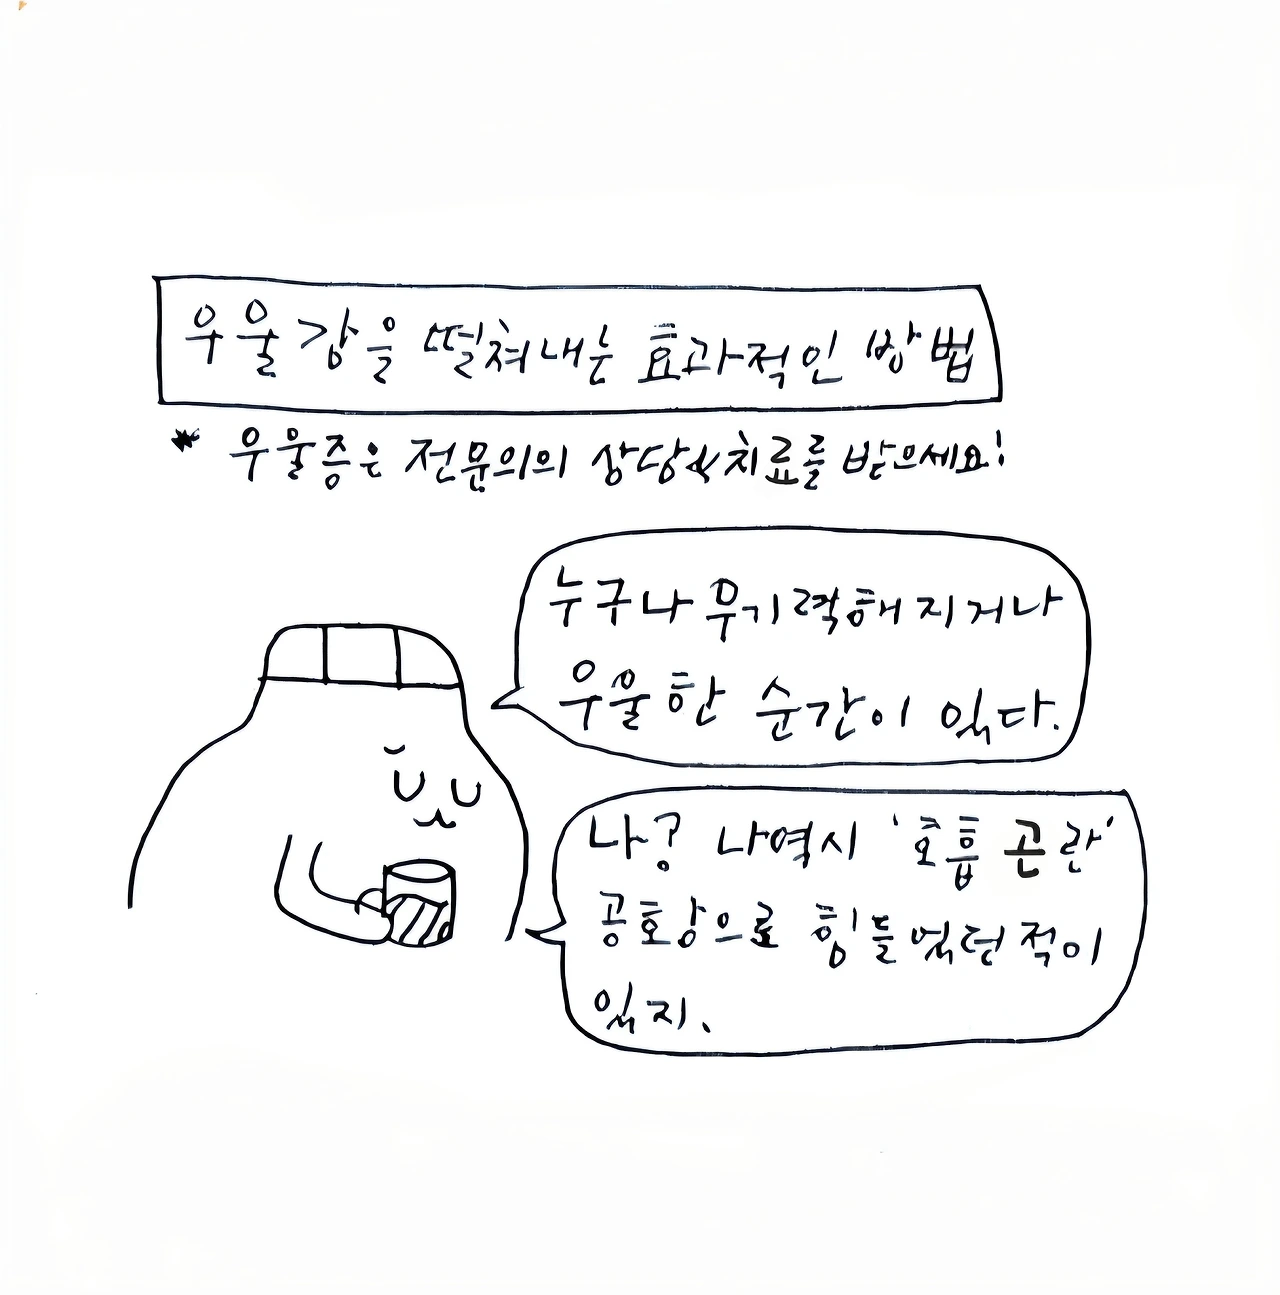 우울감을 떨쳐내는 효과적인 방법
* 우울증은 전문의의 상담&치료를 받으세요!
누구나 무기력해지거나
우울한 순간이 있다.
나? 나역시 '호흡 곤란'
공호항으로 힘들었던적이
있지.